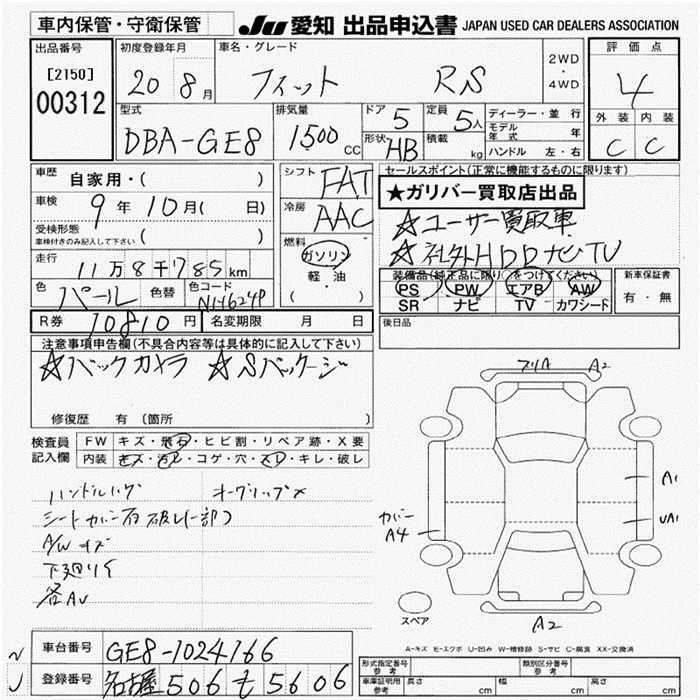 車内保管・守衛保管
JU 愛知 出品申込書 JAPAN USED CAR DEALERS ASSOCIATION
出品番号 初度登録年月 車名・グレード 評価点
[2150] 20 8月 フィット RS 2WD・4WD 4
00312
型式 排気量 ドア 5 定員 5人 ディーラー・並行 外装 内装
DBA-GE8 1500CC 形状 HB 積載 kg モデル年式 年 C C
ハンドル 左・右
車歴 自家用・( ) シフト FAT セールスポイント(正常に機能するものに限ります)
★ガリバー買取店出品
車検 9年10月( 日) 冷房 AAC ☆ユーザー買取車
受検形態 ( )
車検付きのみ記入して下さい
燃料 ☆社外HDDナビTV
走行 11万8千785km ガソリン
軽・油
( )
装備品(純正品に限り○をつけてください) 新車保証書
色 パール 色替 色コード NH624P PS PW エアB AW 有・無
SR ナビ TV カワシード
R券 10810円 名変期限 月 日 後日品
注意事項申告欄(不具合内容等は具体的に記入して下さい)
☆バックカメラ ☆Sパッケージ
修復歴 有 (箇所 )
検査員記入欄 FW キズ・飛石・ヒビ割・リペア跡・X要
内装 キズ・汚レ・コゲ・穴・スレ・キレ・破レ
A2
ハンドルハゲ
A1
シートカバー右破レ(一部)
カバー A4
A/Wキズ
下廻りサビ
各AU
スペア
A2
A-キズ E-エクボ U-凹み W-補修跡 S-サビ C-腐食 XX-交換済
車台番号 GE8-1024166
登録番号 名古屋 506 も 5606
形式指定番号 参考 類別区分番号 参考
車庫証明用 参考 長さ cm 幅 cm 高さ cm